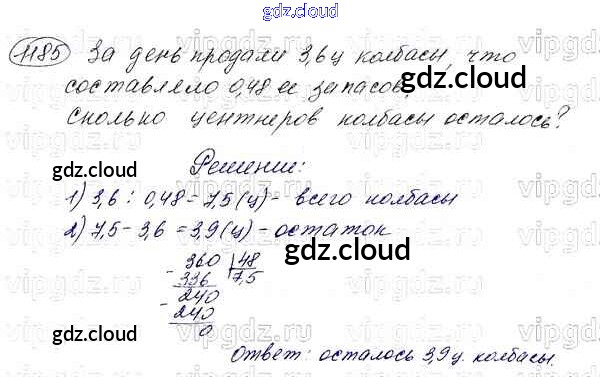 gdz.cloud
1185 За день продали 3,6 ц колбасы, что
составляло 0,48 ее запасов.
Сколько центнеров колбасы осталось?
gdz.cloud
gdz.cloud
Решение:
1) 3,6 : 0,48 = 7,5 (ц) - всего колбасы
gdz.cloud
2) 7,5 - 3,6 = 3,9 (ц) - остаток
gdz.cloud
360 | 48
- 336 7,5
240
- 240
0
gdz.cloud
gdz.cloud
Ответ: осталось 3,9 ц. колбасы.